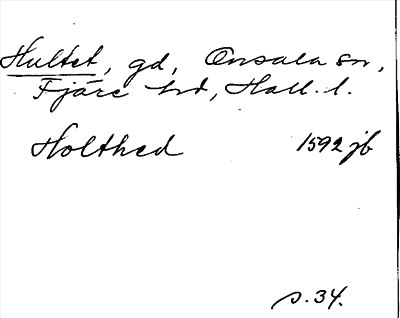 Hultet, gd, Onsala sn,
Fjäre hd, Hall. l.
Holthed 1592 jb
s. 34.